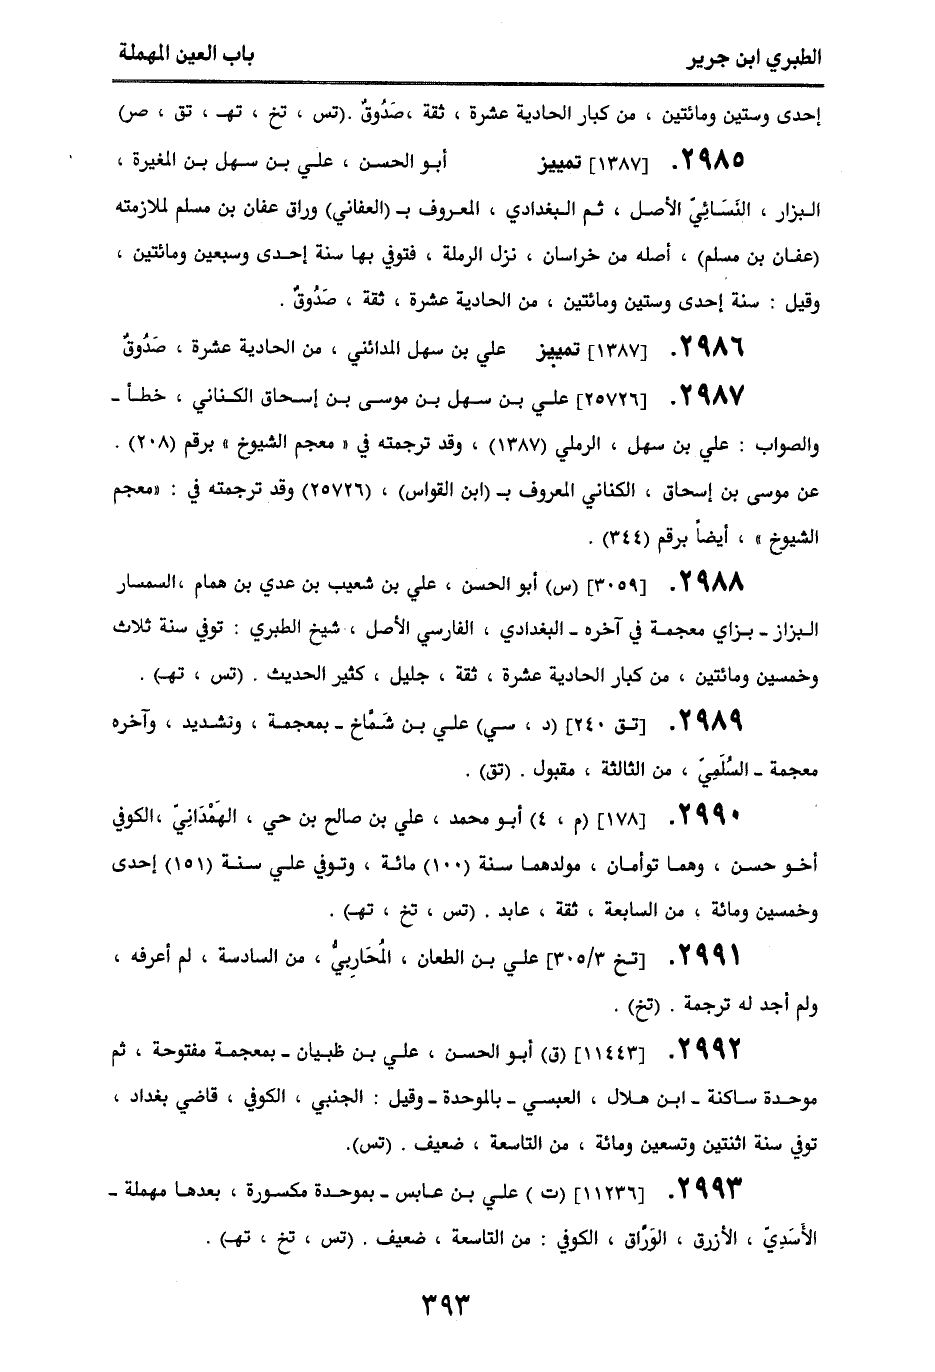 الطبري ابن جرير
باب العين المهملة
إحدى وستين ومائتين ، من كبار الحادية عشرة ، ثقة ،صَدُوقٌ .(تس ، تخ ، تهـ ، تق ، صر)
٢٩٨٥. [١٣٨٧] تمييز أبو الحسن ، علي بن سهل بن المغيرة ،
البزار ، النَسَائِيّ الأصل ، ثم البغدادي ، المعروف بـ (العفاني) وراق عفان بن مسلم لملازمته
(عفان بن مسلم) ، أصله من خراسان ، نزل الرملة ، فتوفي بها سنة إحدى وسبعين ومائتين ،
وقيل : سنة إحدى وستين ومائتين ، من الحادية عشرة ، ثقة ، صَدُوقٌ .
٢٩٨٦. [١٣٨٧] تمييز علي بن سهل المدائني ، من الحادية عشرة ، صَدُوقٌ
٢٩٨٧. [٢٥٧٢٦] علي بن سهل بن موسى بن إسحاق الكناني ، خطأ ـ
والصواب : علي بن سهل ، الرملي (١٣٨٧) ، وقد ترجمته في « معجم الشيوخ » برقم (٢٠٨) .
عن موسى بن إسحاق ، الكناني المعروف بـ (ابن القواس) ، (٢٥٧٢٦) وقد ترجمته في : «معجم
الشيوخ » ، أيضاً برقم (٣٤٤) .
٢٩٨٨. [٣٠٥٩] (س) أبو الحسن ، علي بن شعيب بن عدي بن همام ،السمسار
البزاز ـ بزاي معجمة في آخره ـ البغدادي ، الفارسي الأصل ، شيخ الطبري : توفي سنة ثلاث
وخمسين ومائتين ، من كبار الحادية عشرة ، ثقة ، جليل ، كثير الحديث . (تس ، تهـ) .
٢٩٨٩. [تق ٢٤٠] (د ، سي) علي بن شَمَّاخ ـ بمعجمة ، وتشديد ، وآخره
معجمة ـ السُلَمِيّ ، من الثالثة ، مقبول . (تق) .
٢٩٩٠. [١٧٨] (م ، ٤) أبو محمد ، علي بن صالح بن حي ، الهَمْدَانِيّ ،الكوفي
أخو حسن ، وهما توأمان ، مولدهما سنة (١٠٠) مائة ، وتوفي علي سنة (١٥١) إحدى
وخمسين ومائة ، من السابعة ، ثقة ، عابد . (تس ، تخ ، تهـ) .
٢٩٩١. [تخ ٣٠٥/٣] علي بن الطعان ، المُحَارِبيُّ ، من السادسة ، لم أعرفه ،
ولم أجد له ترجمة . (تخ) .
٢٩٩٢. [١١٤٤٣] (ق) أبو الحسن ، علي بن ظبيان ـ بمعجمة مفتوحة ، ثم
موحدة ساكنة ـ ابن هلال ، العبسي ـ بالموحدة ـ وقيل : الجنبي ، الكوفي ، قاضي بغداد ،
توفي سنة اثنتين وتسعين ومائة ، من التاسعة ، ضعيف . (تس).
٢٩٩٣. [١١٢٣٦] (ت ) علي بن عابس ـ بموحدة مكسورة ، بعدها مهملة ـ
الأَسَدِيّ ، الأزرق ، الوَرَّاق ، الكوفي : من التاسعة ، ضعيف . (تس ، تخ ، تهـ) .
٣٩٣